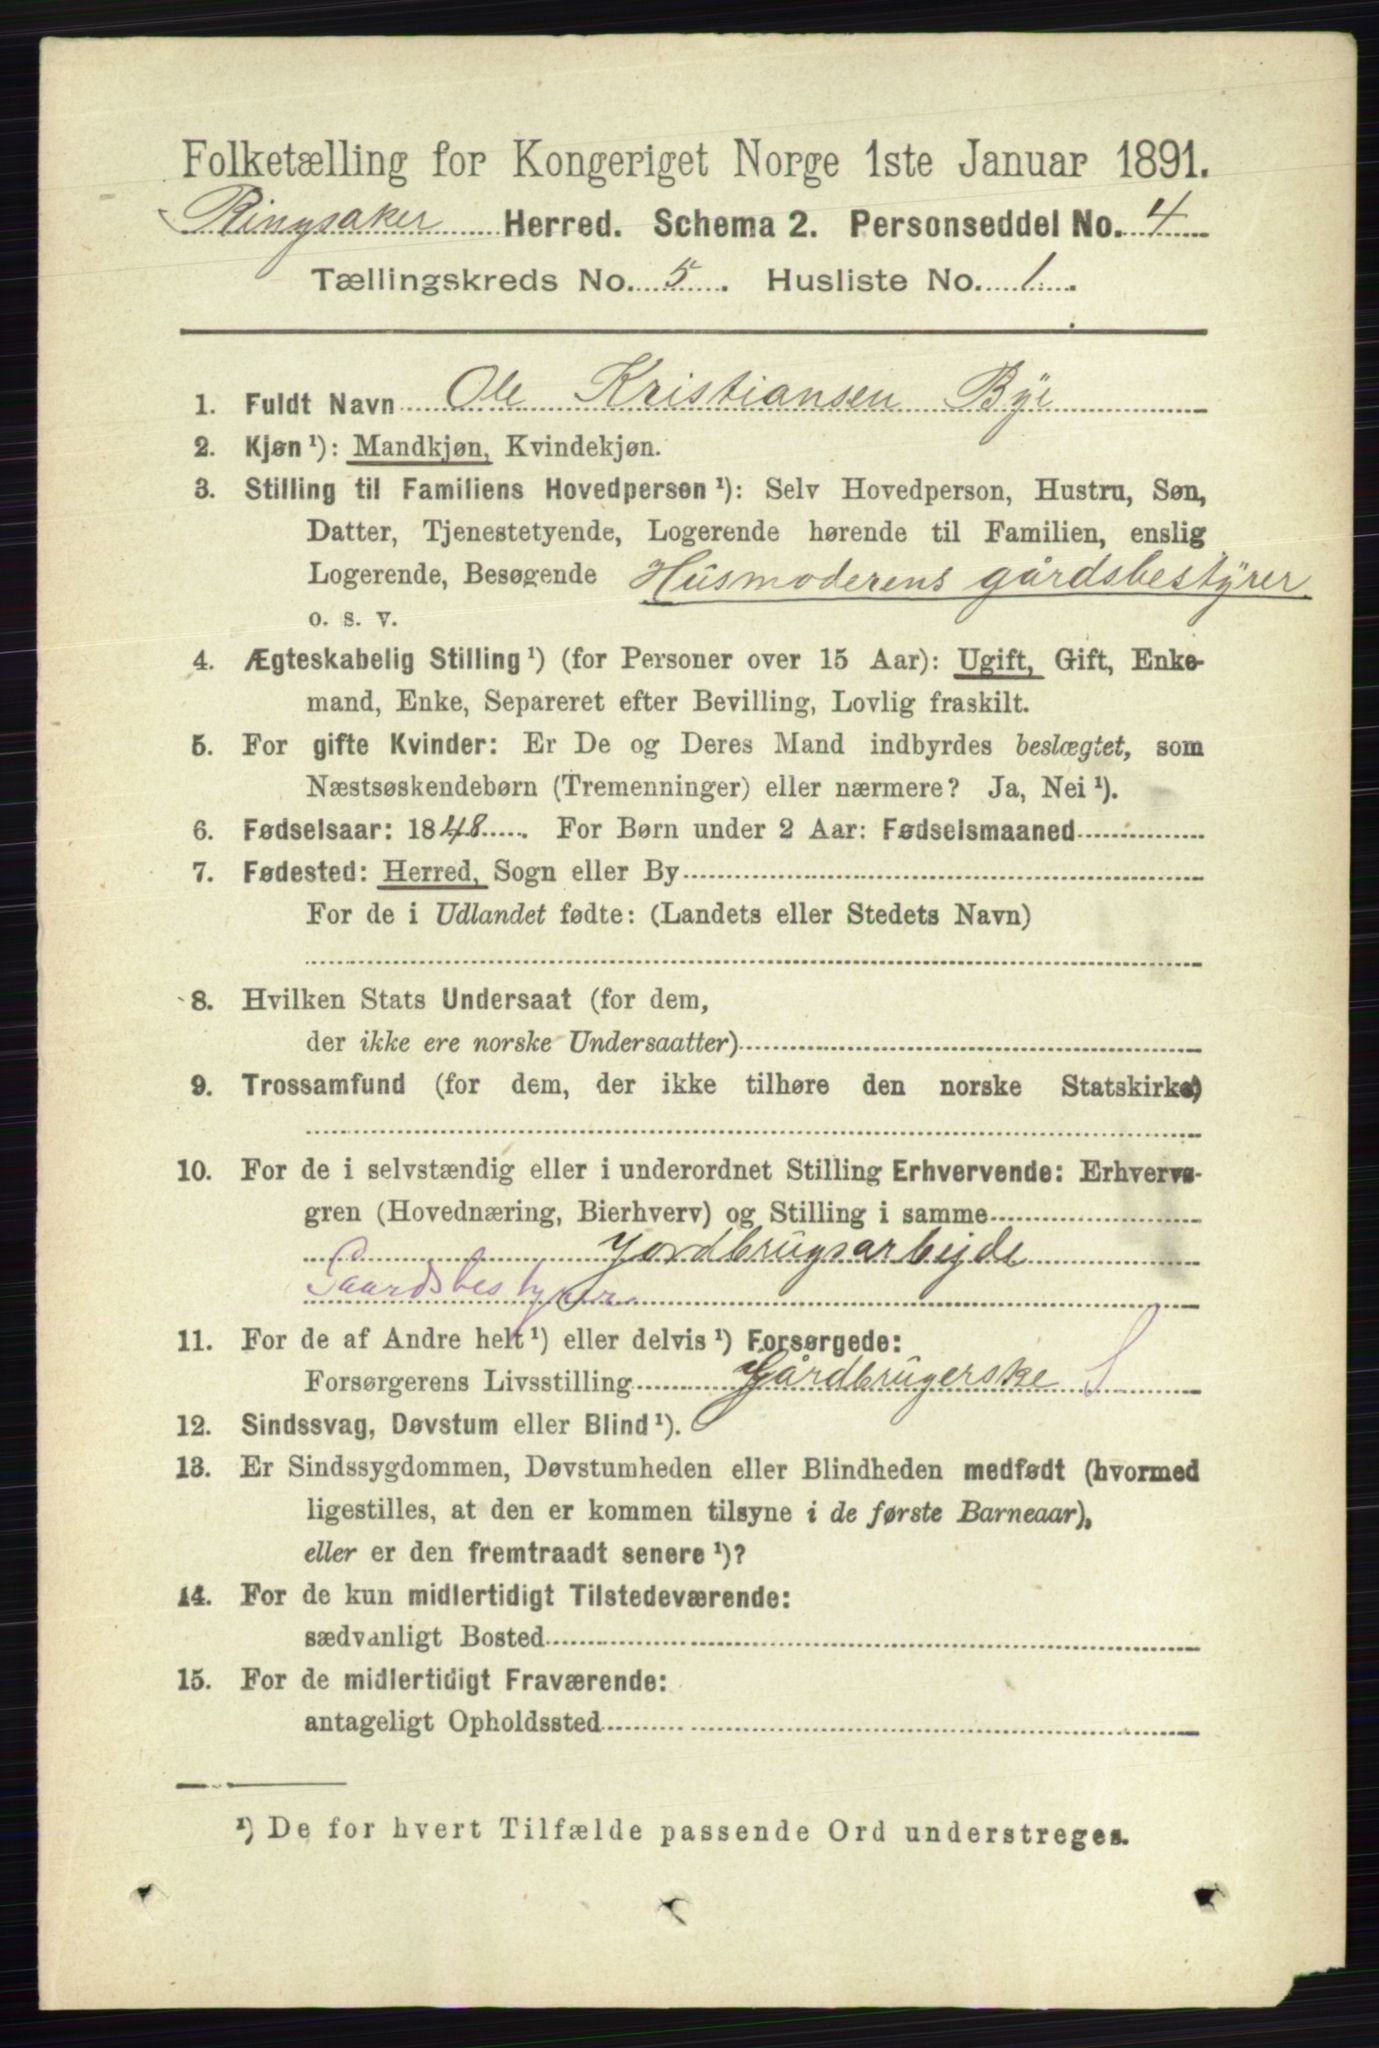 Folketælling for Kongeriget Norge 1ste Januar 1891.
Ringsaker Herred. Schema 2. Personseddel No. 4
Tællingskreds No. 5. Husliste No. 1.
1. Fuldt Navn Ole Kristiansen Bye
2. Kjøn ¹): Mandkjøn, Kvindekjøn.
3. Stilling til Familiens Hovedperson ¹): Selv Hovedperson, Hustru, Søn,
Datter, Tjenestetyende, Logerende hørende til Familien, enslig
Logerende, Besøgende Husmoderens gårdsbestyrer
o. s. v.
4. Ægteskabelig Stilling ¹) (for Personer over 15 Aar): Ugift, Gift, Enke-
mand, Enke, Separeret efter Bevilling, Lovlig fraskilt.
5. For gifte Kvinder: Er De og Deres Mand indbyrdes beslægtet, som
Næstsøskendebørn (Tremenninger) eller nærmere? Ja, Nei ¹).
6. Fødselsaar: 1848. For Børn under 2 Aar: Fødselsmaaned
7. Fødested: Herred, Sogn eller By
For de i Udlandet fødte: (Landets eller Stedets Navn)
8. Hvilken Stats Undersaat (for dem,
der ikke ere norske Undersaatter)
9. Trossamfund (for dem, der ikke tilhøre den norske Statskirke)
10. For de i selvstændig eller i underordnet Stilling Erhvervende: Erhvervs-
gren (Hovednæring, Bierhverv) og Stilling i samme
Jordbrugsarbejde
Gaardsbestyrer
11. For de af Andre helt ¹) eller delvis ¹) Forsørgede:
Forsørgerens Livsstilling Gårdbrugerske S
12. Sindssvag, Døvstum eller Blind ¹).
13. Er Sindssygdommen, Døvstumheden eller Blindheden medfødt (hvormed
ligestilles, at den er kommen tilsyne i de første Barneaar),
eller er den fremtraadt senere ¹)?
14. For de kun midlertidigt Tilstedeværende:
sædvanligt Bosted
15. For de midlertidigt Fraværende:
antageligt Opholdssted
¹) De for hvert Tilfælde passende Ord understreges.